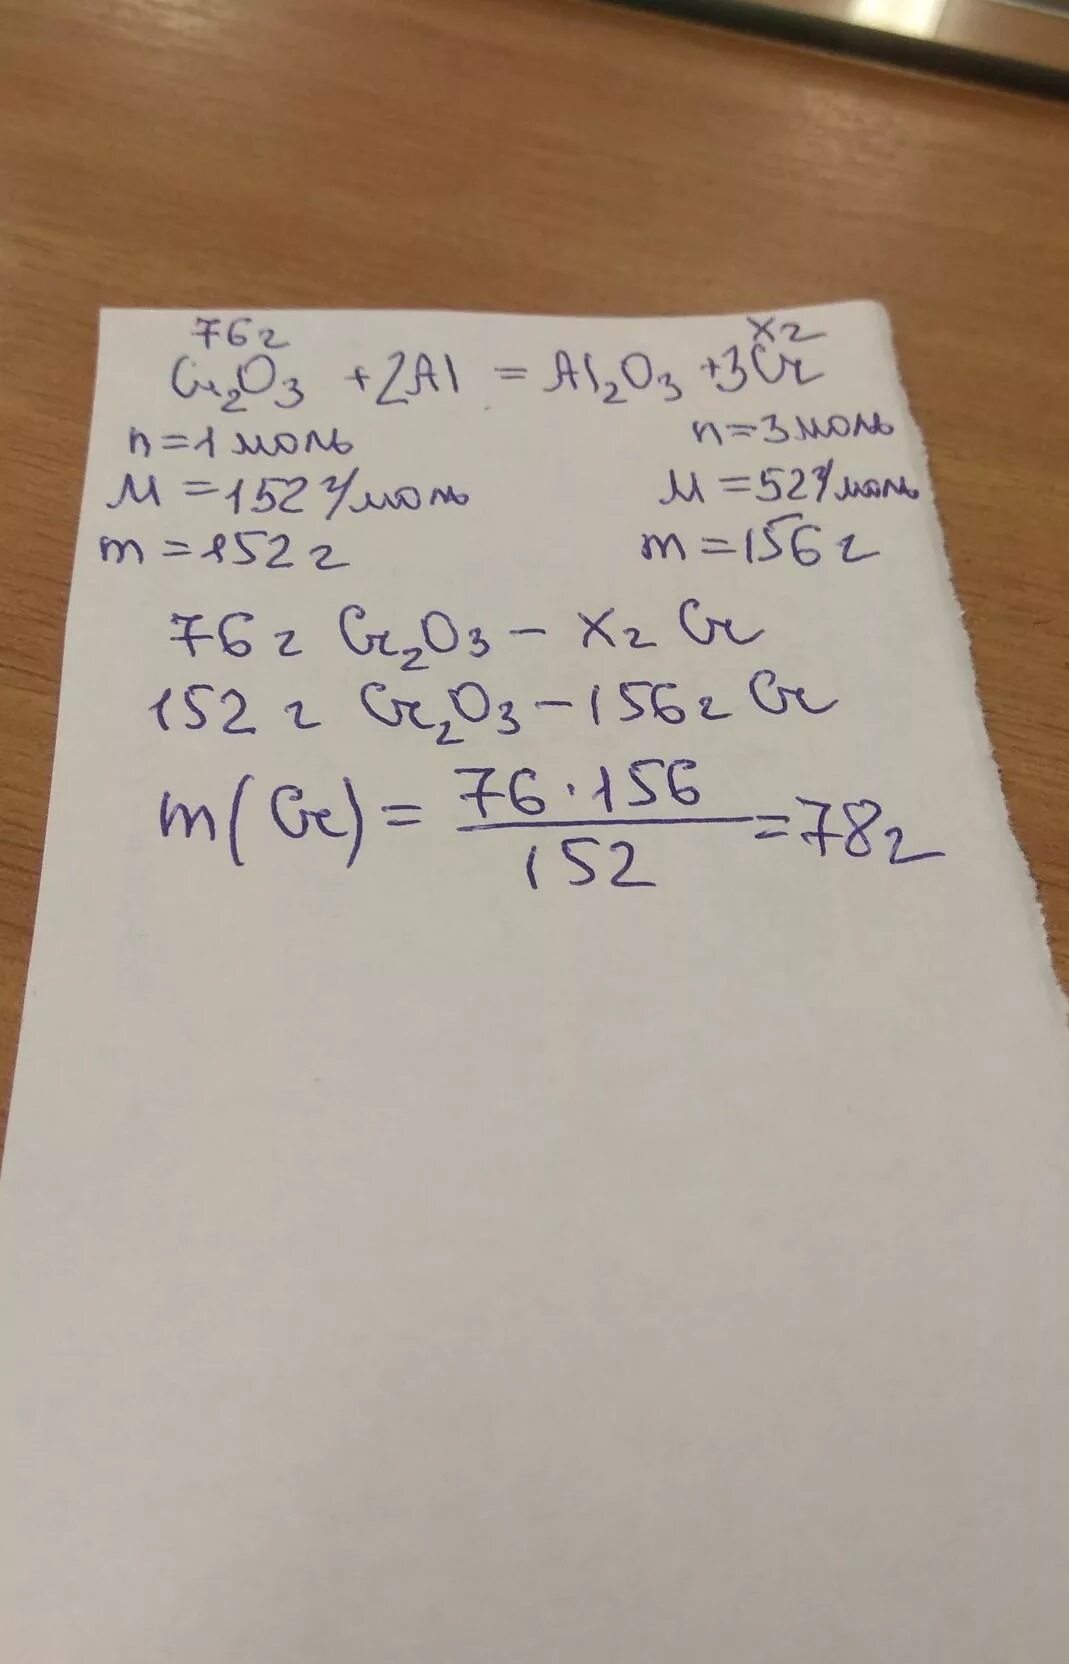 76г                    xг
Cr₂O₃ + 2Al = Al₂O₃ + 3Cr
n = 1 моль                    n = 3 моль
M = 152 г/моль                    M = 52 г/моль
m = 152 г                    m = 156 г
76 г Cr₂O₃ – x г Cr
152 г Cr₂O₃ – 156 г Cr
m(Cr) = \frac{76 · 156}{152} = 78 г